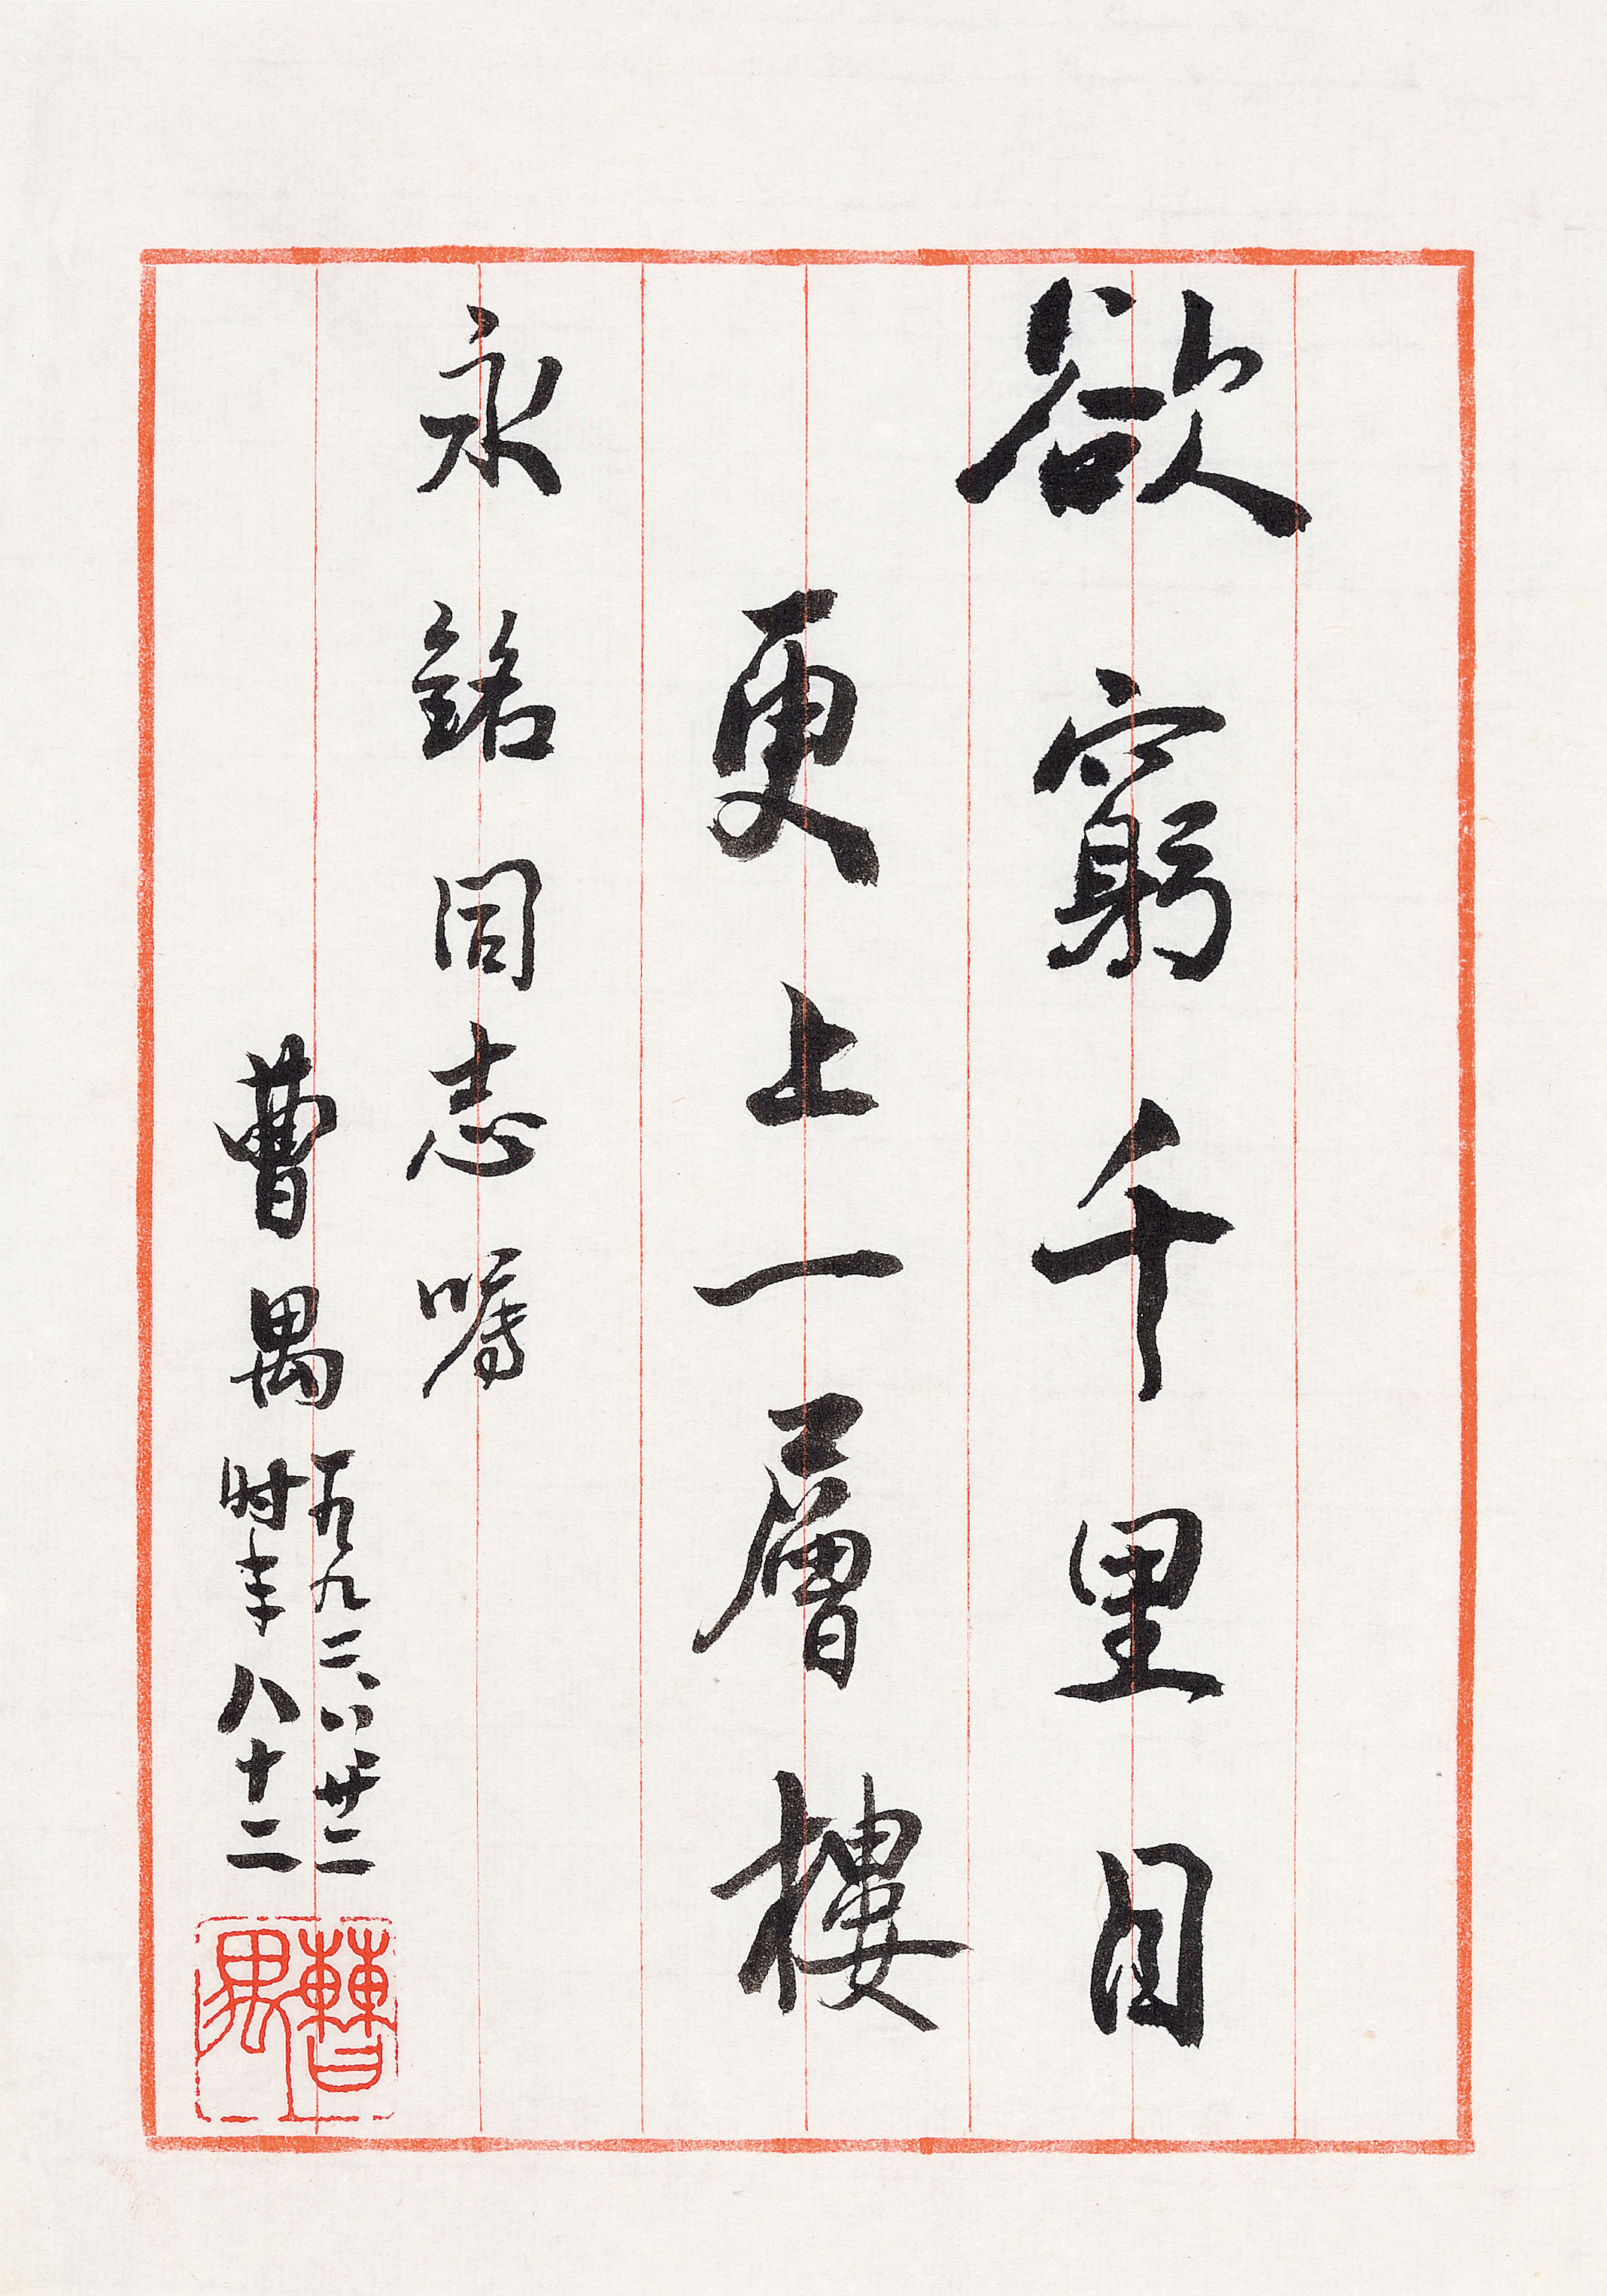 欲窮千里目
更上一層樓
永銘同志嘱
曹禺
一九九二、六、廿二
时年八十二
曹禺